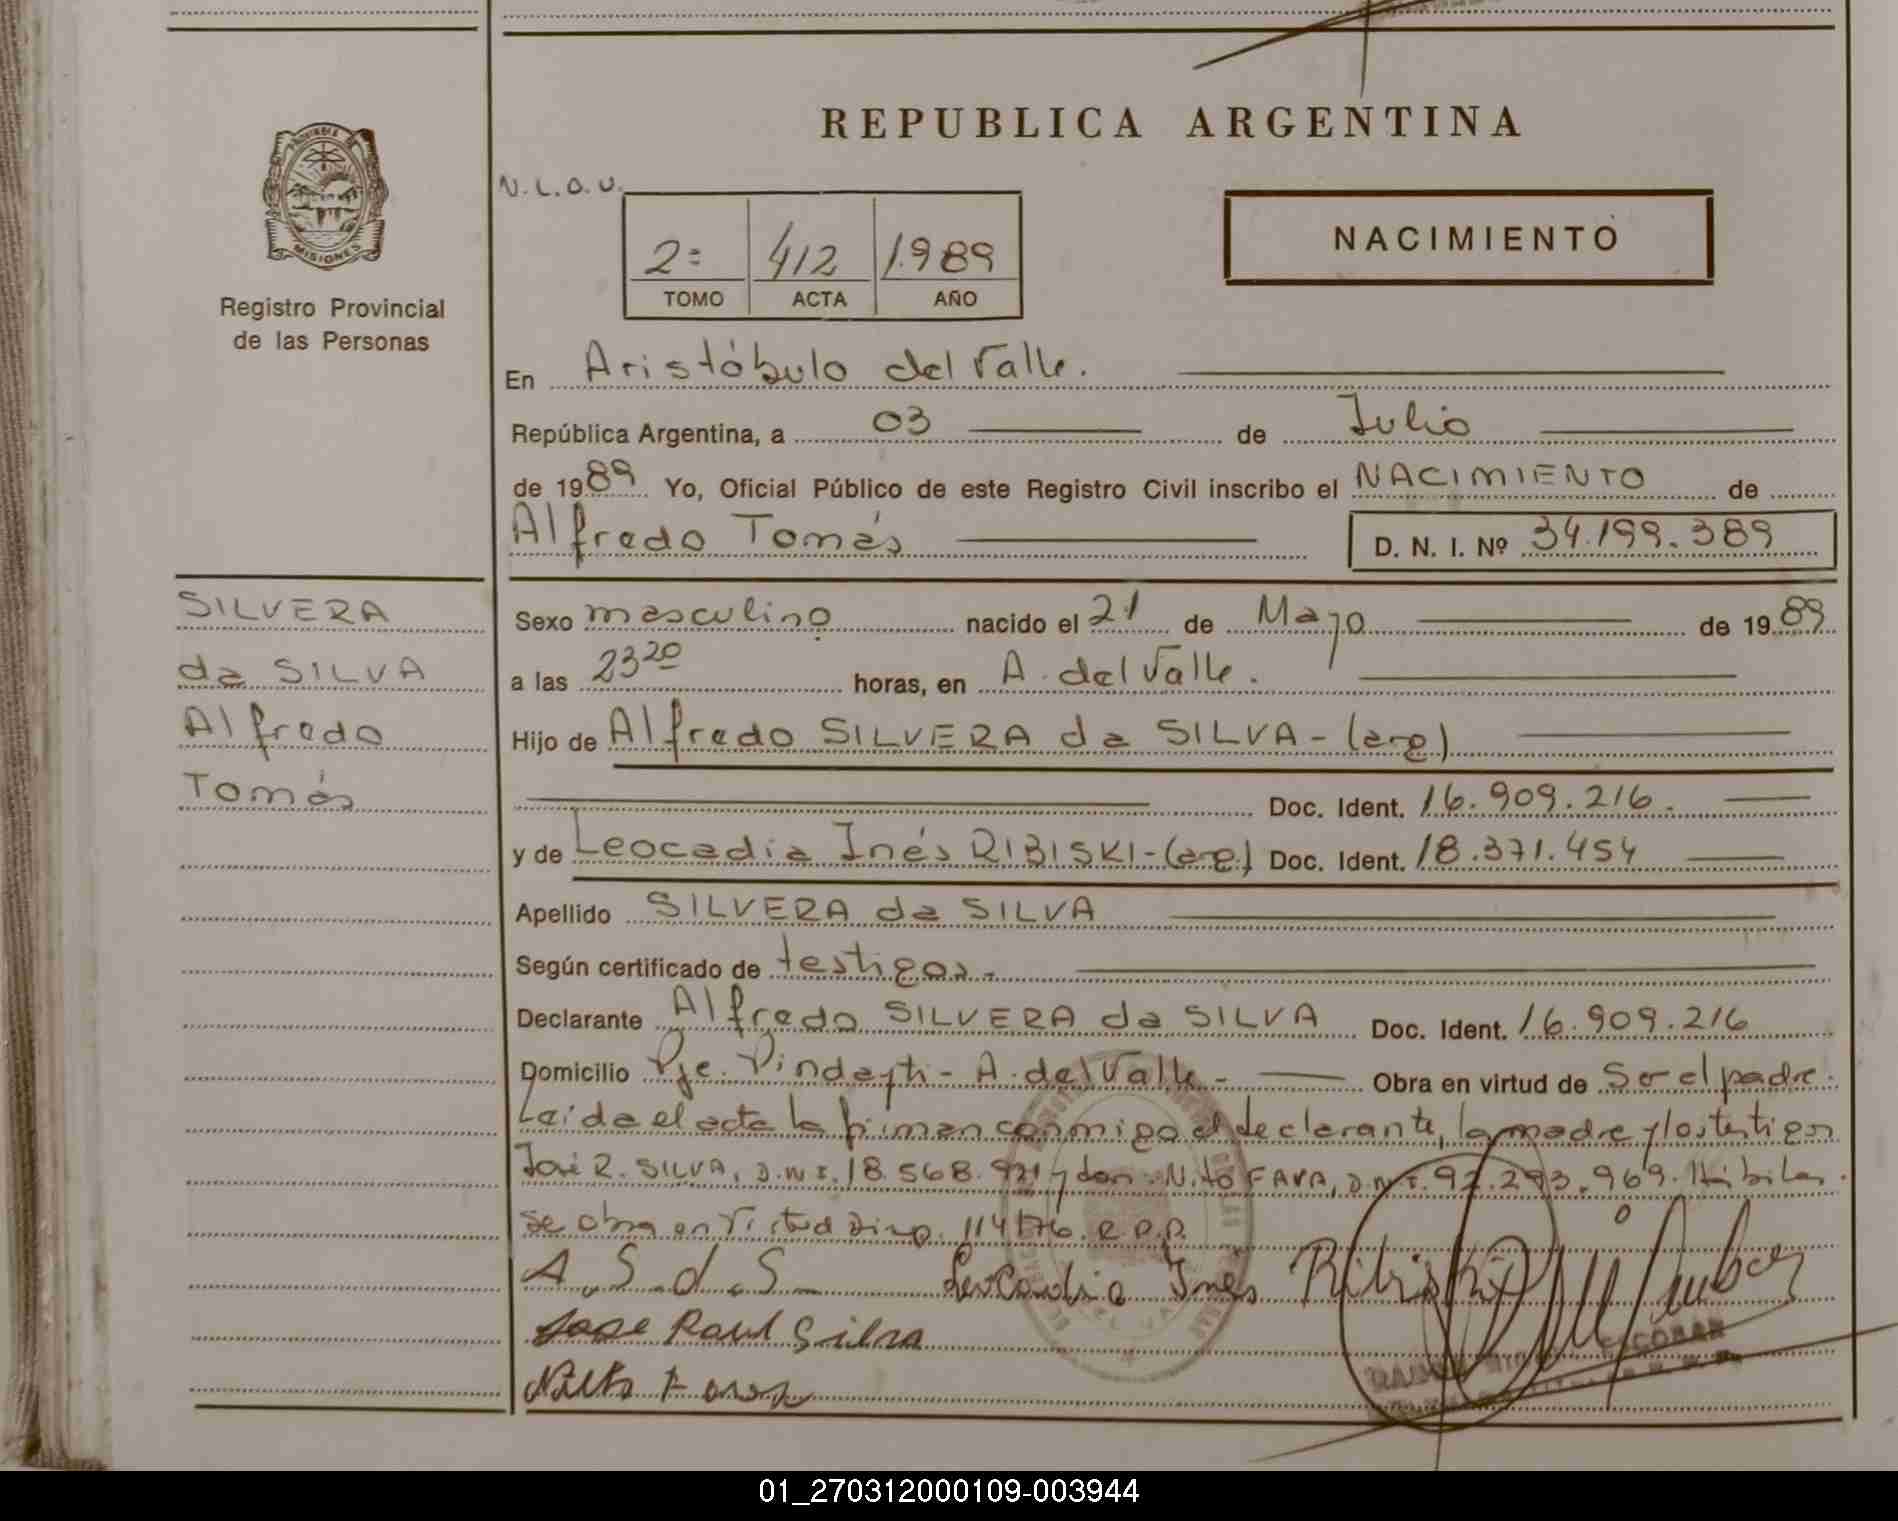 REPUBLICA ARGENTINA
PROVINCIA DE
MISIONES
Registro Provincial
de las Personas
N.L.O.U.
2= 412 1.989
TOMO ACTA AÑO
NACIMIENTO
En Aristóbulo del Valle.
República Argentina, a 03 de Julio
de 1989 Yo, Oficial Público de este Registro Civil inscribo el NACIMIENTO de
Alfredo Tomás D. N. I. Nº 34.199.389
SILVERA
da SILVA
Alfredo
Tomás
Sexo masculino nacido el 21 de Mayo de 1989
a las 23 20 horas, en A. del Valle.
Hijo de Alfredo SILVERA da SILVA - (arg)
Doc. Ident. 16.909.216.
y de Leocadia Inés RIBISKI - (arg) Doc. Ident. 18.371.454
Apellido SILVERA da SILVA
Según certificado de testigos.
Declarante Alfredo SILVERA da SILVA Doc. Ident. 16.909.216
Domicilio Pje. Pindayti - A. del Valle - Obra en virtud de Ser el padre.
Leída el acta la firman conmigo el declarante, la madre y los testigos
José R. SILVA, D.N.I. 18.568.921 y don Nito FAVA, D.N.I. 92.293.969. Hábiles.
se obra en Virtud 114/76. R.P.P.
A. S. d. S. Leocadia Ines Ribiski
Jose Raul Silva
ESCOBAR
01_270312000109-003944